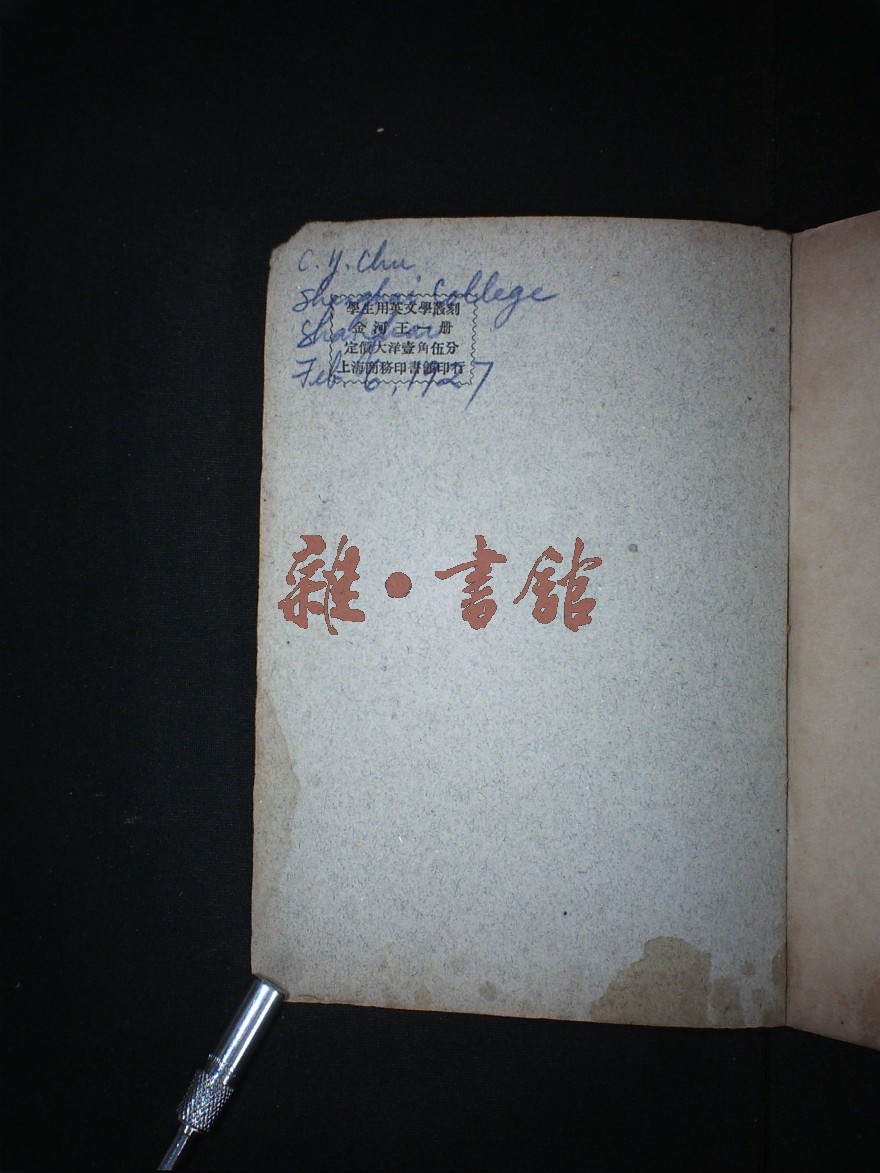 C. Y. Chu
Shanghai College
Shanghai
Feb 6, 1927
學生用英文學叢刻
金河王一册
定價大洋壹角伍分
上海商務印書館印行
雜·書館